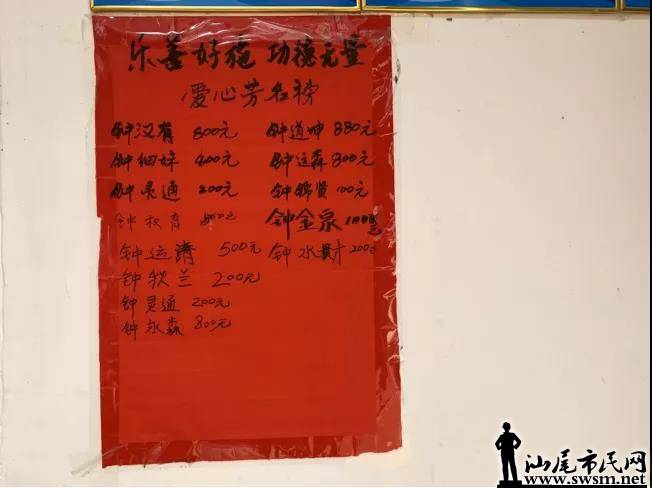 乐善好施 功德无量
爱心芳名榜
钟汉有 800元 钟道坤 880元
钟细妹 400元 钟运森 800元
钟灵通 200元 钟锦贤 100元
钟权育 钟金泉 1000元
钟运清 500元 钟水财 200元
钟秋兰 200元
钟灵通 200元
钟永森 800元
汕尾市民网
www.swsm.net